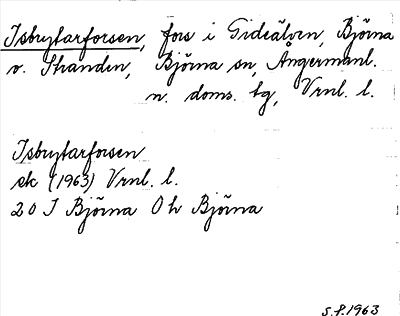 Isbrytarforsen, fors i Gideälven, Björna
v. Stranden, Björna sn, Ångermanl.
n. doms. tg, Vrnl. l.
Isbrytarforsen
ek (1963) Vrnl. l.
20 I Björna Oh Björna
S.f.1963